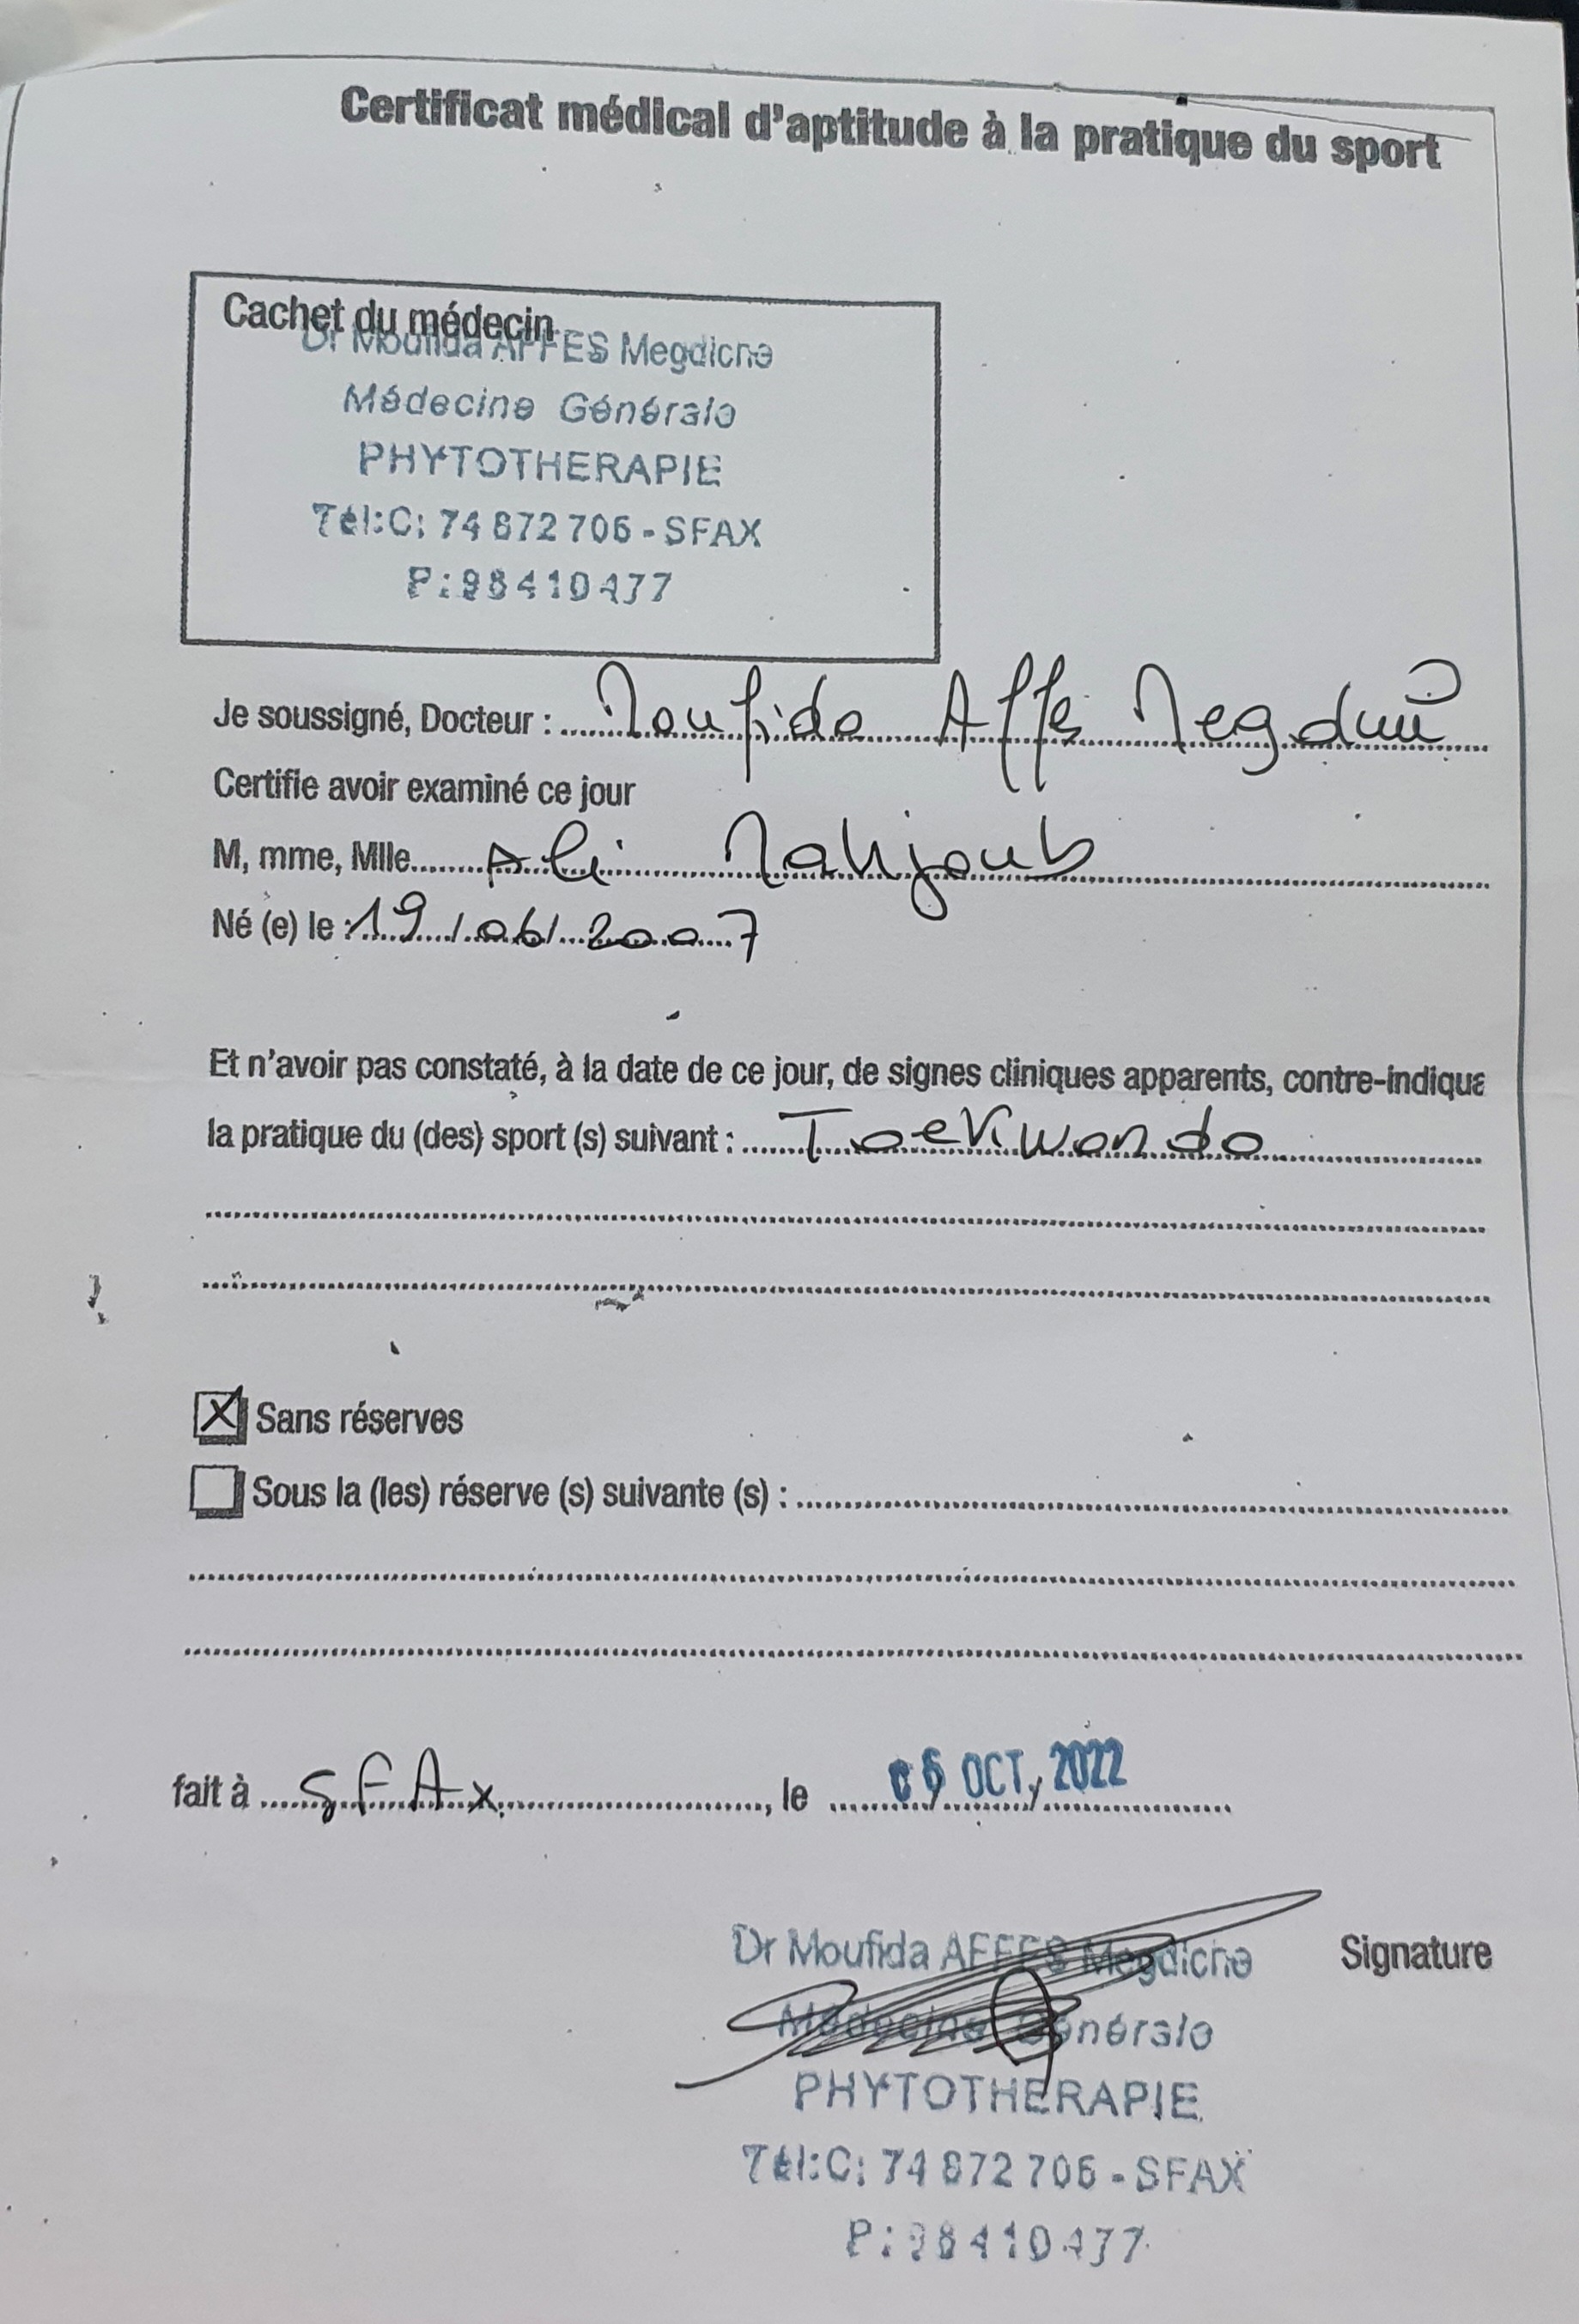 Certificat médical d'aptitude à la pratique du sport
Cachet du médecin
Dr Moufida AFFES Megdiche
Médecine Générale
PHYTOTHERAPIE
Tél:C: 74 872 706 - SFAX
P: 98 410 477
Je soussigné, Docteur : Moufida Affes
Certifie avoir examiné ce jour
M, mme, Mlle Ali Mahjoub
Né (e) le : 19/06/2007
Et n'avoir pas constaté, à la date de ce jour, de signes cliniques apparents, contre-indiqua
la pratique du (des) sport (s) suivant : Taekwondo
X Sans réserves
Sous la (les) réserve (s) suivante (s) :
fait à SFAx, le OCT, 2022
Signature
Dr Moufida AFFES Megdiche
Médecine Générale
PHYTOTHERAPIE
Tél:C: 74 872 706 - SFAX
P: 98 410 477